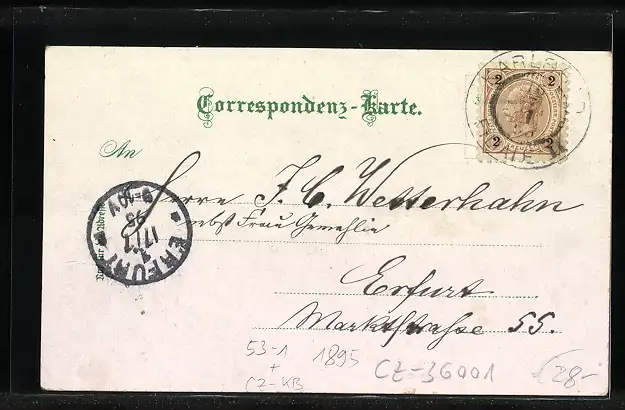 Correspondenz-Karte.
2 2
2 2
An
Herrn F. C. Westerhahn
nebst Frau Gemahlin
Erfurt
Marktstrasse 55.
ERFURT
17/7
95
9-10V
53-1 1895 CZ-36001 28-
+
CZ-KB